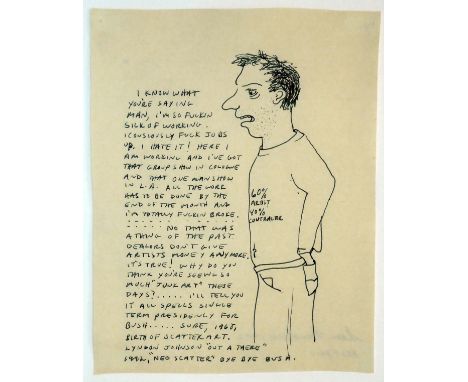 I KNOW WHAT
YOU'RE SAYING
MAN, I'M SO FUCKIN
SICK OF WORKING.
ICOUSIOUSLY FUCK JOBS
UP. I HATE IT! HERE I
AM WORKING AND I'VE GOT
THAT GROUP SHOW IN COLOGNE
AND THAT ONE MAN SHOW
IN L.A. ALL THE WORK
HAS TO BE DONE BY THE
END OF THE MONTH AND
I'M TOTALLY FUCKIN BROKE.
...... NO THAT WAS
A THING OF THE PAST
DEALERS DON'T GIVE
ARTISTS MONEY ANYMORE.
IT'S TRUE! WHY DO YOU
THINK YOU'RE SEEING SO
MUCH "JUNK ART" THESE
DAYS?..... I'LL TELL YOU
IT ALL SPELLS SINGLE
TERM PRESIDENCY FOR
BUSH..... SURE, 1965,
BIRTH OF SCATTER ART.
LYNDON JOHNSON "OUT A THERE"
1992, "NEO SCATTER" BYE BYE BUSH.
60%
ARTIST
40%
CONTRACTER